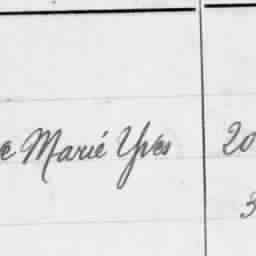 e Marié Yves 20
3